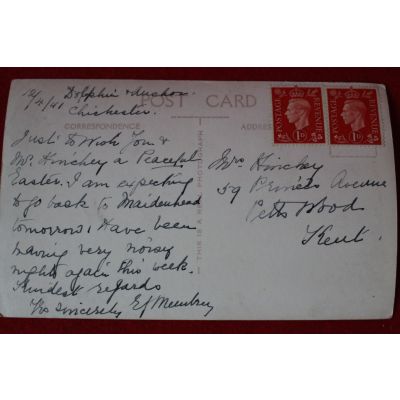 12/4/41 Dolphin & Anchor
Chichester.
POST CARD
CORRESPONDENCE
ADDRESS
Just to Wish You &
Mr. Hinckey a Peaceful
Easter. I am expecting
to go back to Maidenhead
tomorrow, I have been
having very noisy
nights again this week.
Kindest regards
Yrs Sincerely
THIS IS A REAL PHOTOGRAPH
POSTAGE REVENUE
1D
POSTAGE REVENUE
1D
Mrs Hinckey
59 Princes Avenue
Petts Wood
Kent.